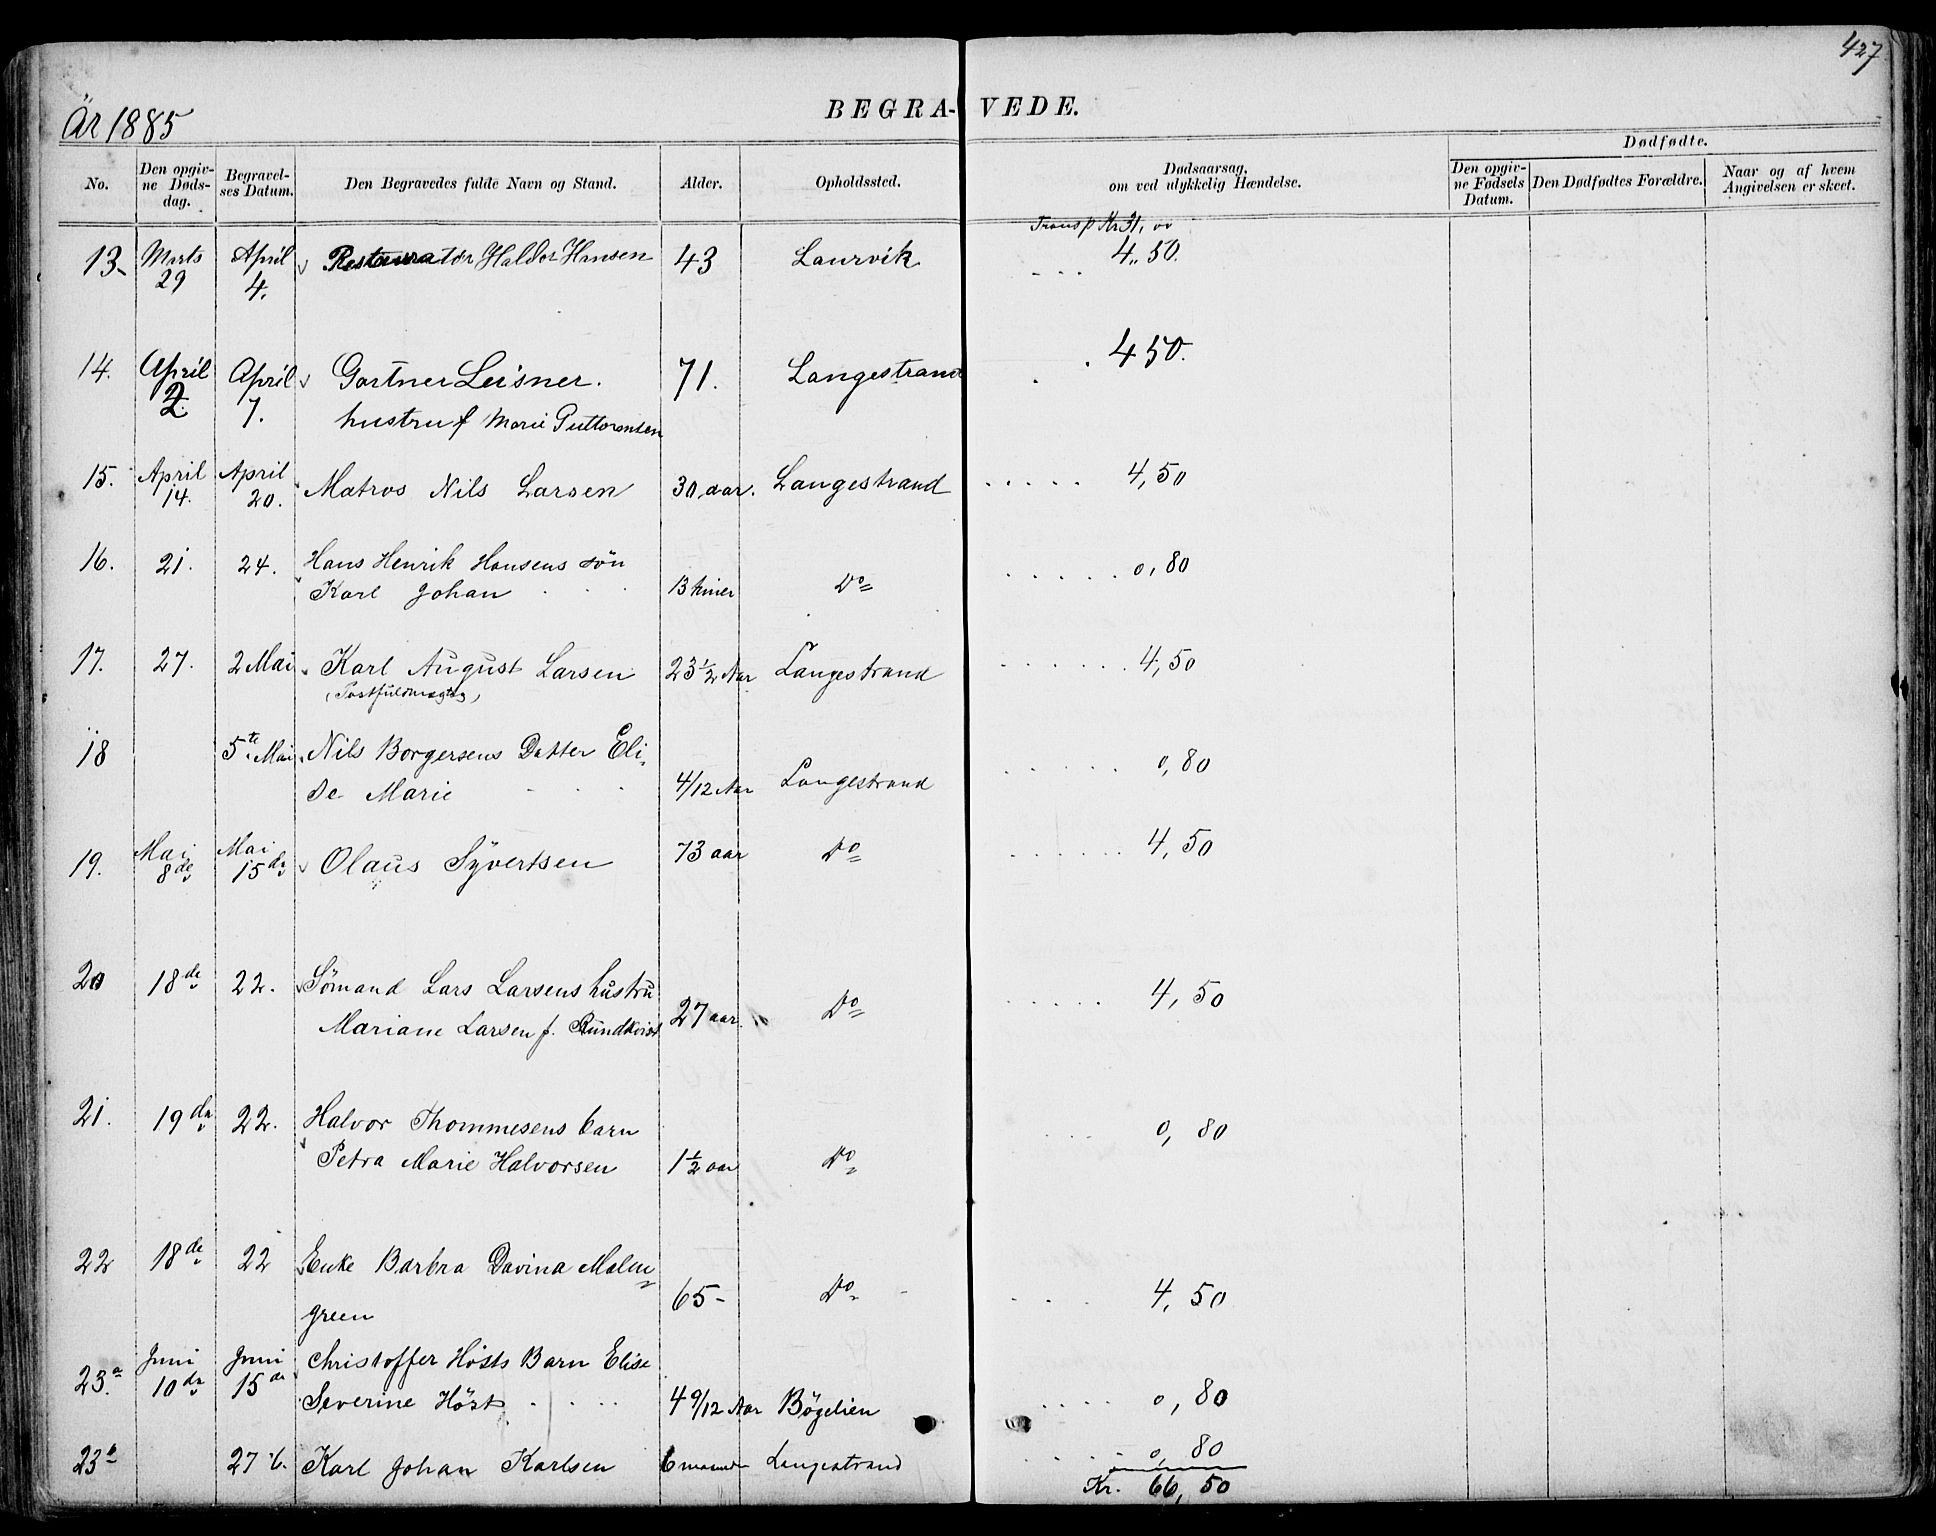 427
År 1885
BEGRA-VEDE.
No.
Den opgivne Dødsdag.
Begravelses Datum.
Den Begravedes fulde Navn og Stand.
Alder.
Opholdssted.
Dødsaarsag, om ved ulykkelig Hændelse.
Dødfødte.
Den opgivne Fødsels Datum.
Den Dødfødtes Forældre.
Naar og af hvem Angivelsen er skeet.
Transp Kr 31, 00
13 Marts 29 April 4. Restauratør Haldor Hansen 43 Laurvik 4,50.
14. April 2. April 7. Gartner Leisner. 71. Langestrand 450.
hustru f Marie
15. April 14. April 20. Matros Nils Larsen 30 aar. Langestrand 4,50
16. 21. 24. Hans Henrik Hansens søn
Karl Johan 13 timer Do 0,80
17. 27. 2 Mai Karl August Larsen 23 1/2 Aar Langestrand 4,50
(Postfuldmægtig)
18 5te Mai Nils Borgersens Datter Eli-
se Marie 4/12 Aar Langestrand 0,80
19. Mai 8de Mai 15de Olaus Syvertsen 73 aar Do 4,50
20 18de 22. Sømand Lars Larsens hustru
Mariane Larsen f. Rundkvist 27 aar. Do 4,50
21. 19de 22. Halvor Thommesens barn
Petra Marie Halvorsen 1 1/2 aar Do 0,80
22 18de 22 Enke Barbra Davina Malm=
green 65- Do 4,50
23.a Juni 10de Juni 15de Christoffer Høsts Barn Elise
Severine Höst 4 9/12 Aar Bögelien 0,80
23b 27 6. Karl Johan Karlsen 6 Langestrand 0,80
Kr. 66,50